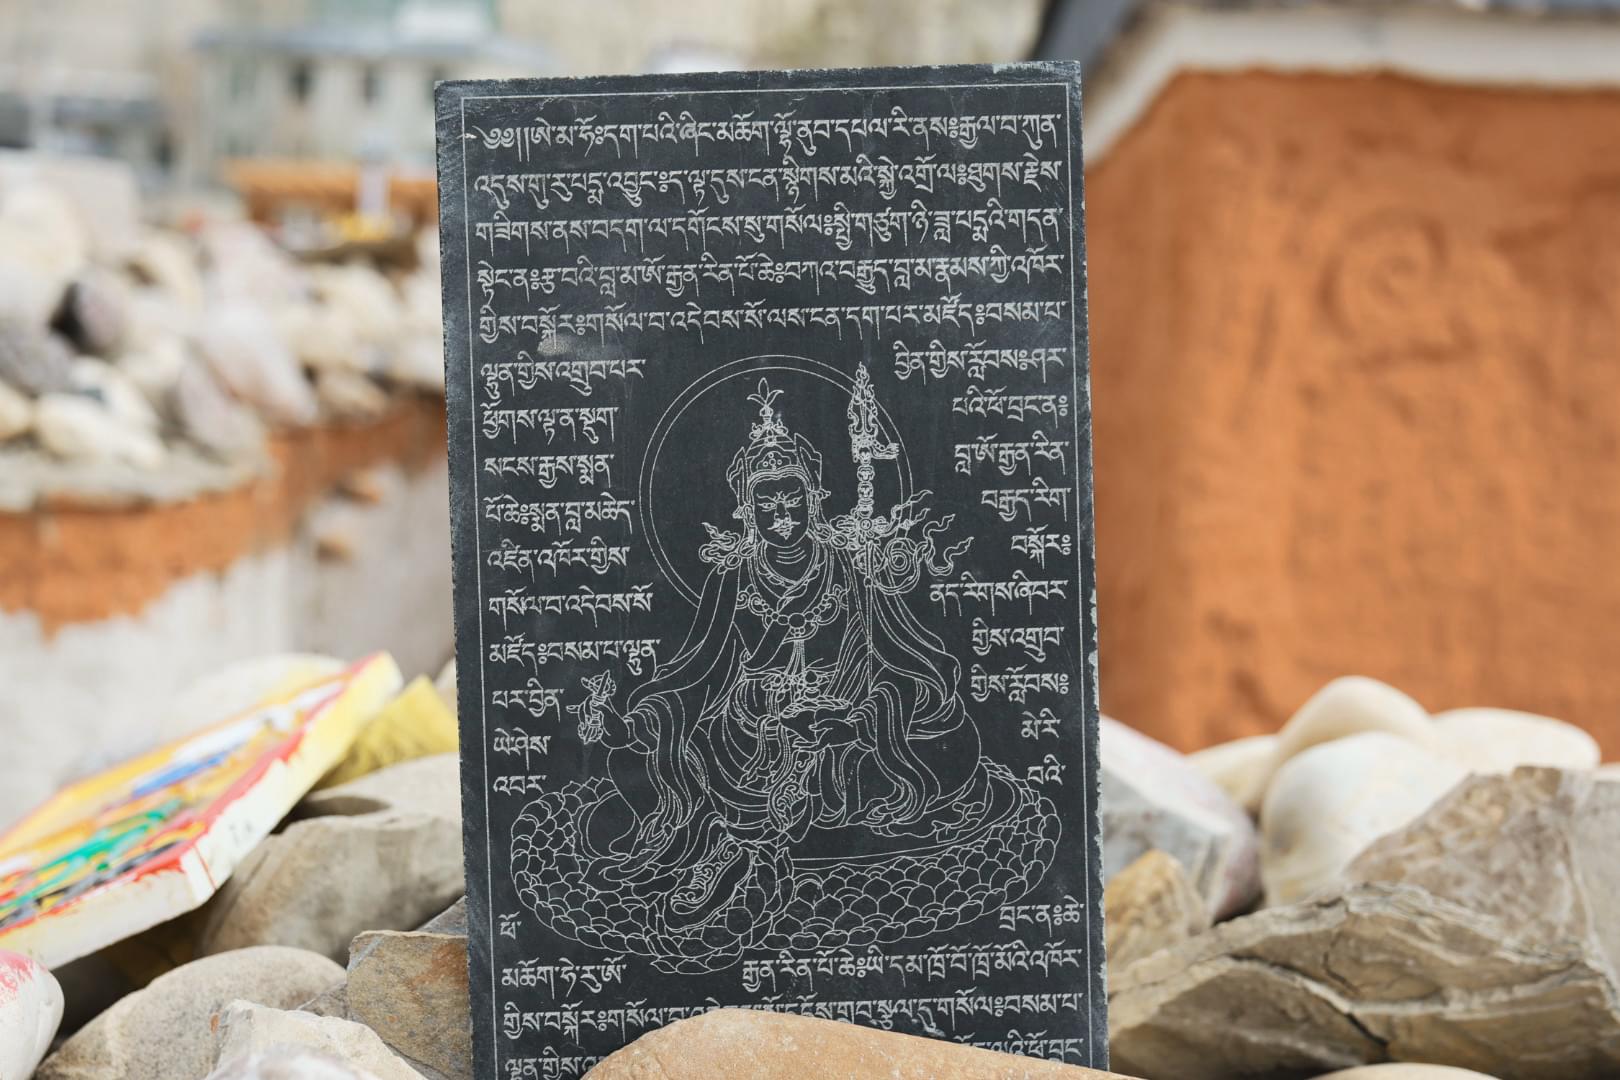 ༄༅།།ཨེ་མ་ཧོཿདག་པའི་ཞིང་མཆོག་ལྷོ་ནུབ་དཔལ་རི་ནསཿརྒྱལ་བ་ཀུན་
འདུས་གུ་རུ་པདྨ་འབྱུང་ཿད་ལྟ་དུས་ངན་སྙིགས་མའི་སྐྱེ་འགྲོ་ལཿཐུགས་རྗེས་
གཟིགས་ནས་བདག་ལ་དགོངས་སུ་གསོལཿསྤྱི་གཙུག་ཉི་ཟླ་པདྨའི་གདན་
སྟེང་ནཿརྩ་བའི་བླ་མ་ཨོ་རྒྱན་རིན་པོ་ཆེཿབཀའ་བརྒྱུད་བླ་མ་རྣམས་ཀྱི་འཁོར་
གྱིས་བསྐོརཿགསོལ་བ་འདེབས་སོ་ལས་ངན་དག་པར་མཛོད་ཿབསམ་པ་
ལྷུན་གྱིས་འགྲུབ་པར་ བྱིན་གྱིས་རློབསཿཤར་
ཕྱོགས་ལྟ་ན་སྡུག་ པའི་ཕོ་བྲང་ནཿ
སངས་རྒྱས་སྨན་ བླ་ཨོ་རྒྱན་རིན་
པོ་ཆེཿསྨན་བླ་མཆེད་ བརྒྱད་རིག་
འཛིན་འཁོར་གྱིས་ བསྐོརཿ
གསོལ་བ་འདེབས་སོ་ ནད་རིགས་ཞི་བར་
མཛོད་ཿབསམ་པ་ལྷུན་ གྱིས་འགྲུབ་
པར་བྱིན་ གྱིས་རློབསཿ
ཡེ་ཤེས་ མེ་རི་
འབར་ བའི་
ཕོ་ བྲང་ནཿཆེ་
མཆོག་ཧེ་རུ་ཨོ་ རྒྱན་རིན་པོ་ཆེཿཡི་དམ་ཁྲོ་བོ་ཁྲོ་མོའི་འཁོར་
གྱིས་བསྐོརཿགསོལ་བ་ དངོས་གྲུབ་སྩལ་དུ་གསོལཿབསམ་པ་
ལྷུན་གྱིས་ པའི་ཕོ་བྲང་